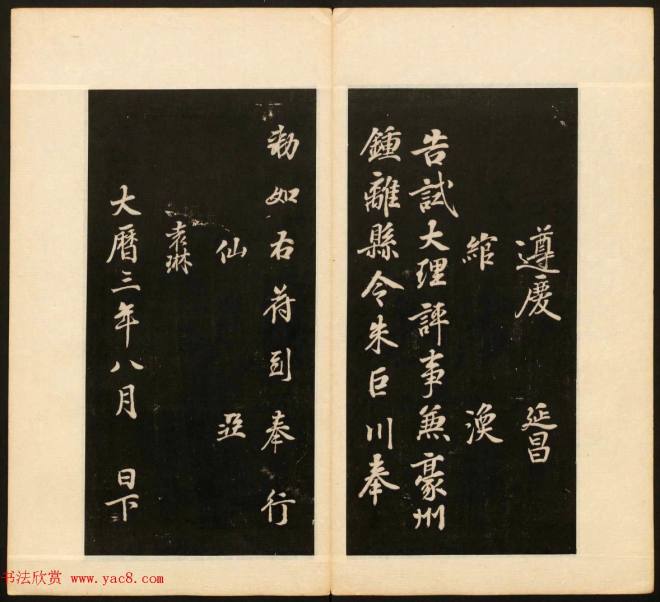 遵慶 延昌
綰 渙
告試大理評事兼豪州
鍾離縣令朱巨川奉
勅如右符到奉行
仙 亞
袁琳
大曆三年八月 日下
书法欣赏 www.yac8.com